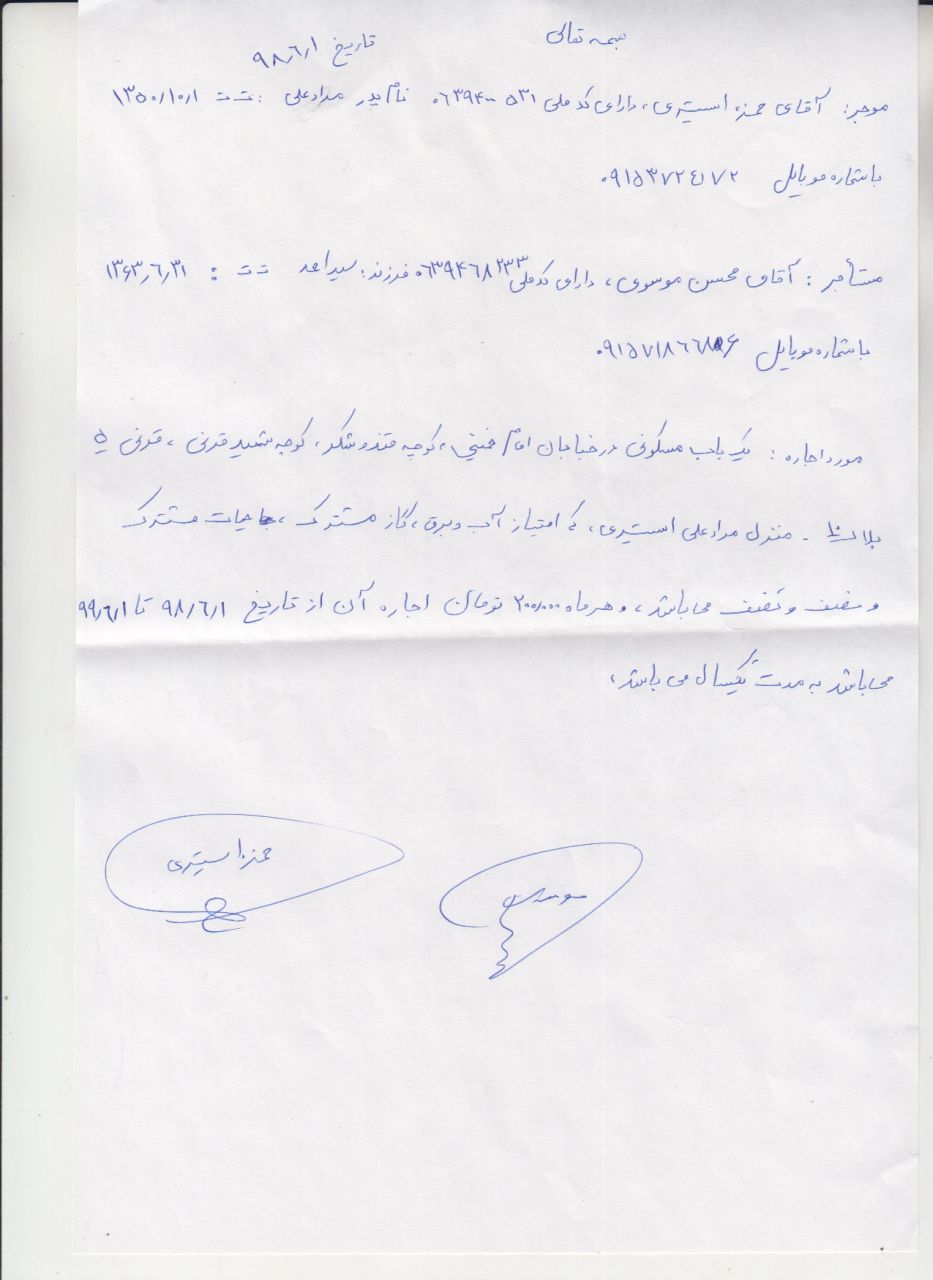 بسمه تعالی
تاریخ ۹۸/۶/۱
موجر: آقای حمزه استیری، دارای کد ملی ۰۶۳۹۴۰۰۵۳۱ نام پدر مرادعلی : ت ت ۱۳۵۰/۱۰/۱
با شماره موبایل ۰۹۱۵۳۷۲۴۱۷۲
مستأجر: آقای محسن موسوی، دارای کد ملی ۰۶۳۹۴۶۸۲۳۳ فرزند: سید احمد ت ت : ۱۳۶۳/۶/۳۱
با شماره موبایل
مورد اجاره: یک باب مسکونی در خیابان امام خمینی، کوچه قند و شکر، کوچه شهید قرنی، قرنی ۵
پلاک منزل مرادعلی استیری، که امتیاز آب و برق، گاز مشترک، حیات مشترک
و می باشد، و هر ماه ۲۰۰/۰۰۰ تومان اجاره آن از تاریخ ۹۸/۶/۱ تا ۹۹/۶/۱
می باشد به مدت یکسال می باشد،
موسوی
حمزه استیری